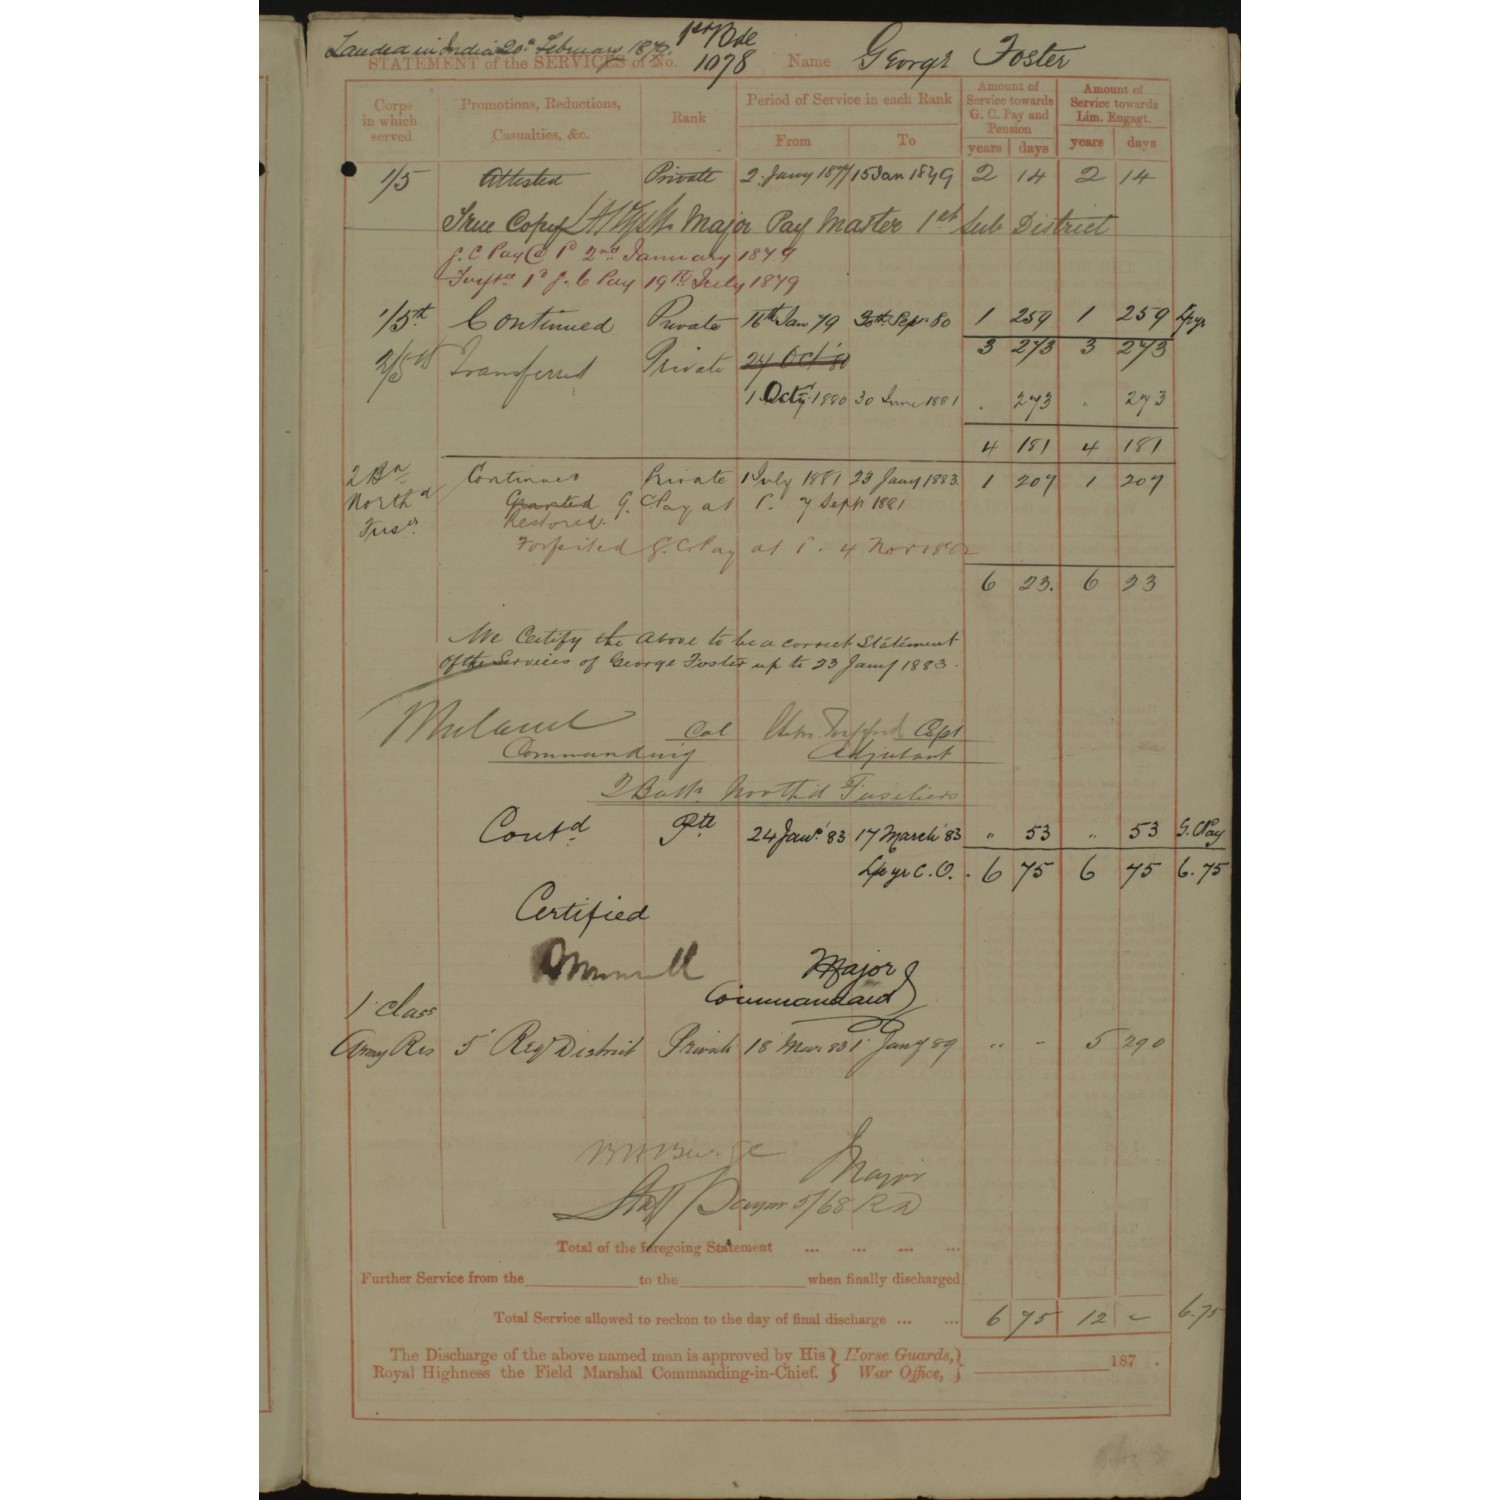 Landed in India 20th February 18
1st/Bde
STATEMENT of the SERVICES of No. 1078 Name George Foster
Corps in which served
Promotions, Reductions, Casualties, &c.
Rank
Period of Service in each Rank
From To
Amount of Service towards G. C. Pay and Pension
years days
Amount of Service towards Lim. Engagt.
years days
1/5 Attested Private 2 Jany 1877 15 Jan 1879 2 14 2 14
True Copy Major Pay Master 1st Sub District
G. C Pay @ 1d 2nd January 1879
1d G. C Pay 19th July 1879
1/5th Continued Private 16th Jan 79 30th Sept 80 1 259 1 259
3 273 3 273
2/5th Transferred Private 24 Oct 80
1 Octr 1880 30 June 1881 . 273 . 273
4 181 4 181
2 Bn North'd Fusrs Continues Private 1 July 1881 23 Jany 1883 1 207 1 207
Granted G. C Pay at 1d. 7 Sept 1881
Restored.
Forfeited G. C Pay at 1d. 4 Nov 1882
6 23. 6 23
We Certify the above to be a correct Statement
of the Services of George Foster up to 23 Jany 1883.
Col Capt
Commanding Adjutant
2 Batt. North'd Fusiliers
Cont'd Pte 24 Jany 83 17 March 83 " 53 " 53 G. C Pay
C. O. . 6 75 6 75 6. 75
Certified
Major
Commandand
1 class
Army Res 5 Reg District Private 18 Mar 83 1 Jany 89 " - - 5 290
Major
Staff Paymr 5/68 R D
Total of the foregoing Statement ... ... ... ...
Further Service from the to the when finally discharged
Total Service allowed to reckon to the day of final discharge ... ... 6 75 12 - 6.75
The Discharge of the above named man is approved by His } Horse Guards, }
Royal Highness the Field Marshal Commanding-in-Chief. } War Office, } 187 .